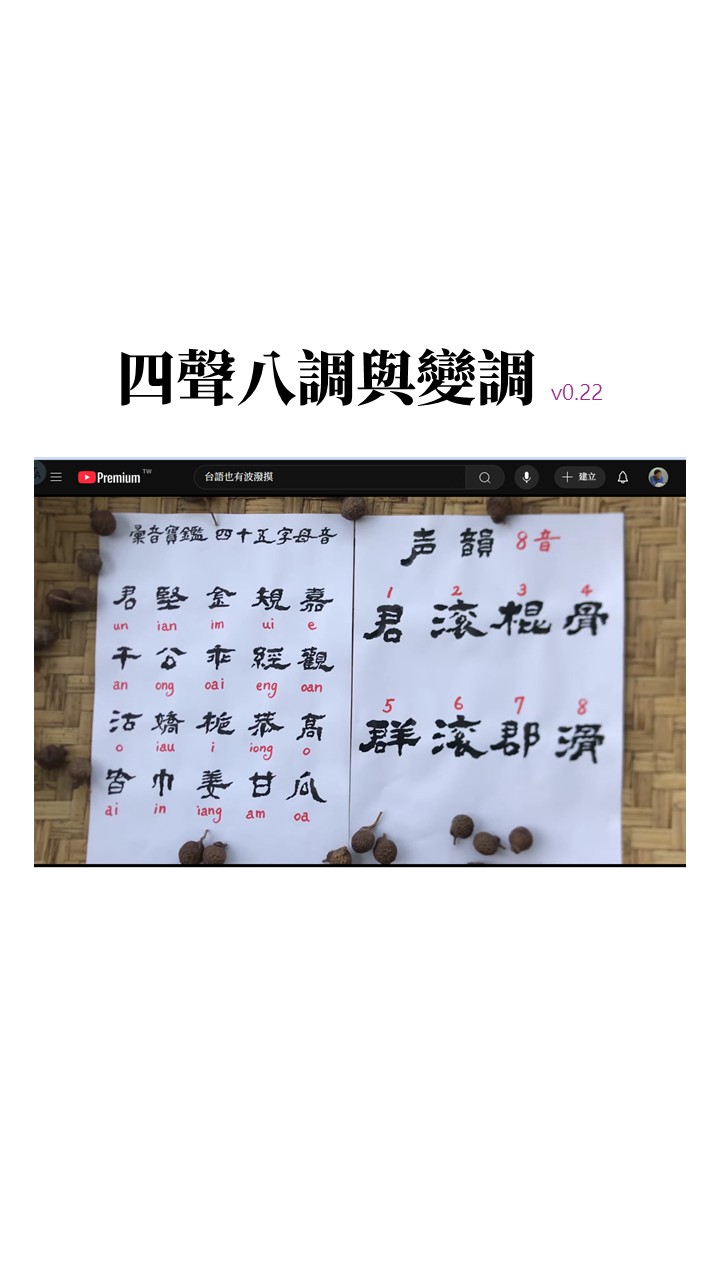 四聲八調與變調 v0.22
Premium TW
台語也有波潑摸
建立
彙音寶鑑 四十五字母音
君 堅 金 規 嘉
un ian im ui e
干 公 乖 經 觀
an ong oai eng oan
沽 嬌 梔 恭 高
o iau i iong o
皆 巾 姜 甘 瓜
ai in iang am oa
声韻 8音
1 2 3 4
君 滾 棍 骨
5 6 7 8
群 滾 郡 滑